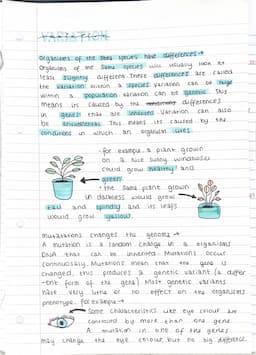 VARIATION
Organisms of the same species have differences →
Organisms of the same species will usually look at
least slightly different. These differences are called
the variation within a species. Variation can be huge
within a population. Variation can be genetic. This
means its caused by the differences
in genes that are inherited. Variation can also
be environmental. This means its caused by the
conditions in which an organism lives.
- for example, a plant grown
on a nice sunny windowsill
could grow healthy and
green.
• the same plant grown
in darkness would grow
tall and spindly and its leafs
would grow yellow.
Mutations changes the genome →
A mutation is a random change in a organisms
DNA that can be inherited. Mutations occur
continuously. Mutations mean that the gene is
changed, this produces a genetic variant (a differ
-ent form of the gene). Most genetic variants
have very little or no effect on the organisms
phenotype. for example →
Some characteristics like eye colour are
controlled by more than one gene.
A mutation in one of the genes
may change the eye colour, but no big difference.